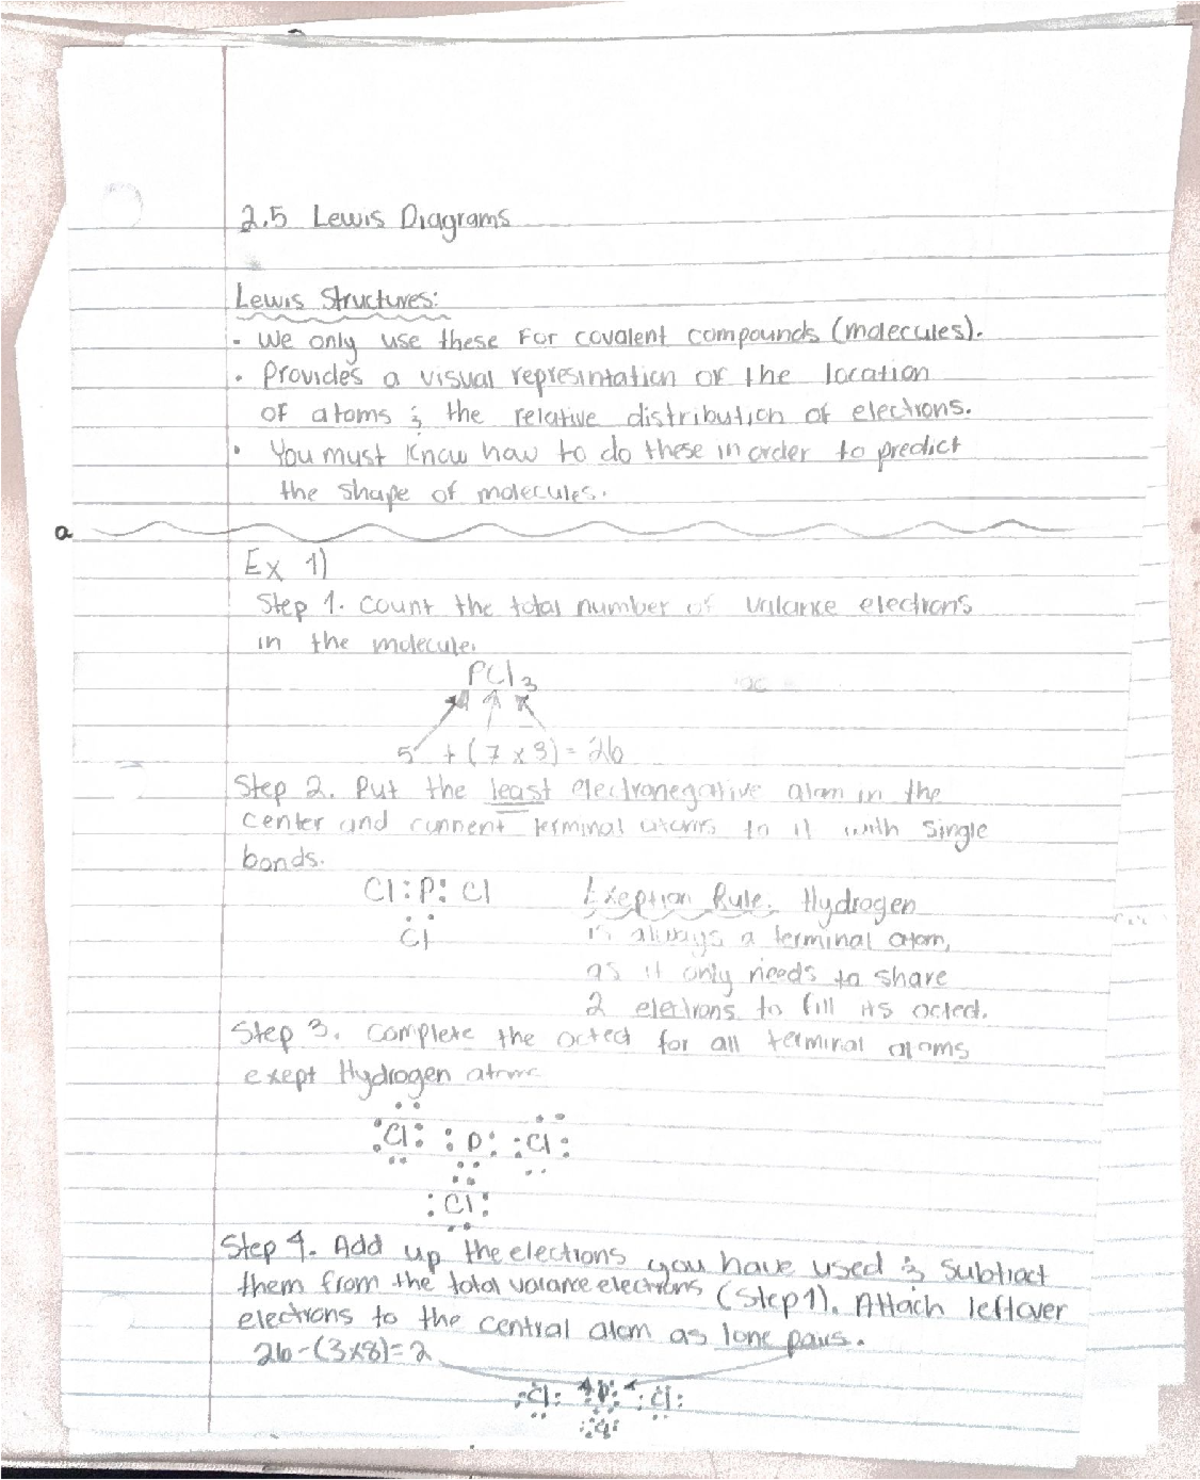 2.5 Lewis Diagrams
Lewis Structures:
- We only use these For covalent compounds (molecules).
• Provides a visual represintation of the location
of atoms & the relative distribution of electrons.
• You must know how to do these in order to predict
the shape of molecules.
a
Ex 1)
Step 1. Count the total number of valance electrons
in the molecule.
PCl3
5 + (7 x 3) = 26
Step 2. Put the least electronegative atom in the
center and connent terminal atoms to it with single
bonds.
Cl : P : Cl
Cl
Exeption Rule. Hydrogen
is always a terminal atom,
as it only needs to share
2 electrons to fill its octed.
Step 3. Complete the octed for all terminal atoms
exept Hydrogen atoms
:Cl: :P: :Cl:
:Cl:
Step 4. Add up the electrons you have used & subtract
them from the total valance electrons (Step 1). Attach leftover
electrons to the central atom as lone pairs.
26-(3x8)=2
:Cl: :P: :Cl:
:Cl: